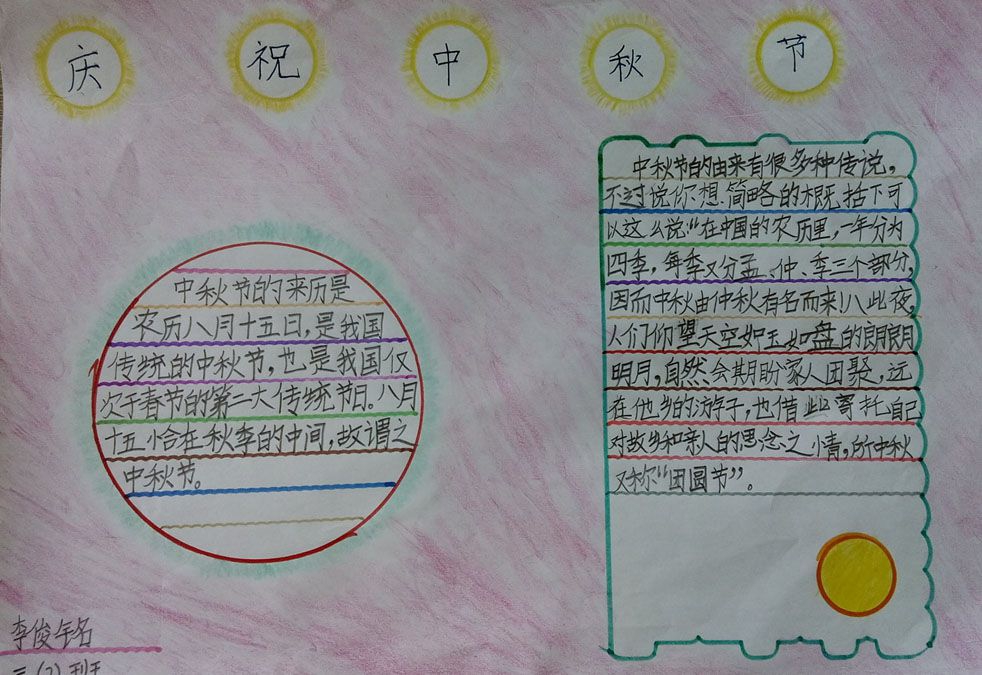 庆祝中秋节
中秋节的来历是
农历八月十五日,是我国
传统的中秋节,也是我国仅
次于春节的第二大传统节日。八月
十五小合在一秋季的中间,故谓之
中秋节。
中秋节的由来有很多种传说,
不过说你想.简略的概括下可
以这么说:"在中国的农历里,一年分为
四季,每季又分孟、仲、季三个部分,
因而中秋由仲秋有名而来!八此夜,
人们仰望天空如玉如盘的朗朗
明月,自然会期盼家人团聚,远
在他乡的游子,也借此寄托自己
对故乡和亲人的思念之情,所中秋
又称"团圆节"。
李俊
三(2)班